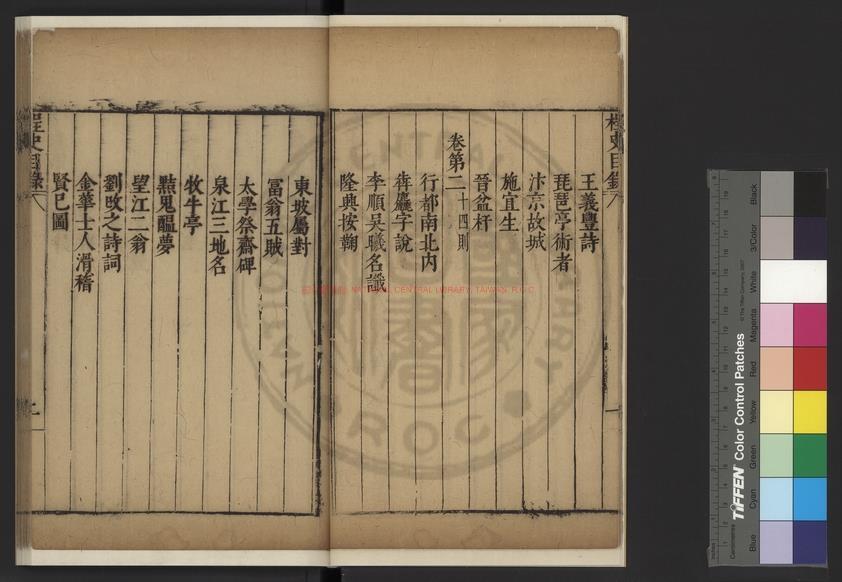 桯史目錄
王義豐詩
琵琶亭術者
汴京故城
施宜生
晉盆杆
卷第二十四則
行都南北內
犇麤字說
李順吳曦名讖
隆興按鞠
東坡屬對
富翁五賊
太學祭齋碑
泉江三地名
牧牛亭
黠鬼醖夢
望江二翁
劉改之詩詞
金華士人滑稽
賢已圖
桯史目錄
NATIONAL CENTRAL LIBRARY, TAIWAN, R.O.C.
TIFFEN Color Control Patches
© The Tiffen Company, 2007
Blue
Cyan
Green
Yellow
Red
Magenta
White
3/Color
Black